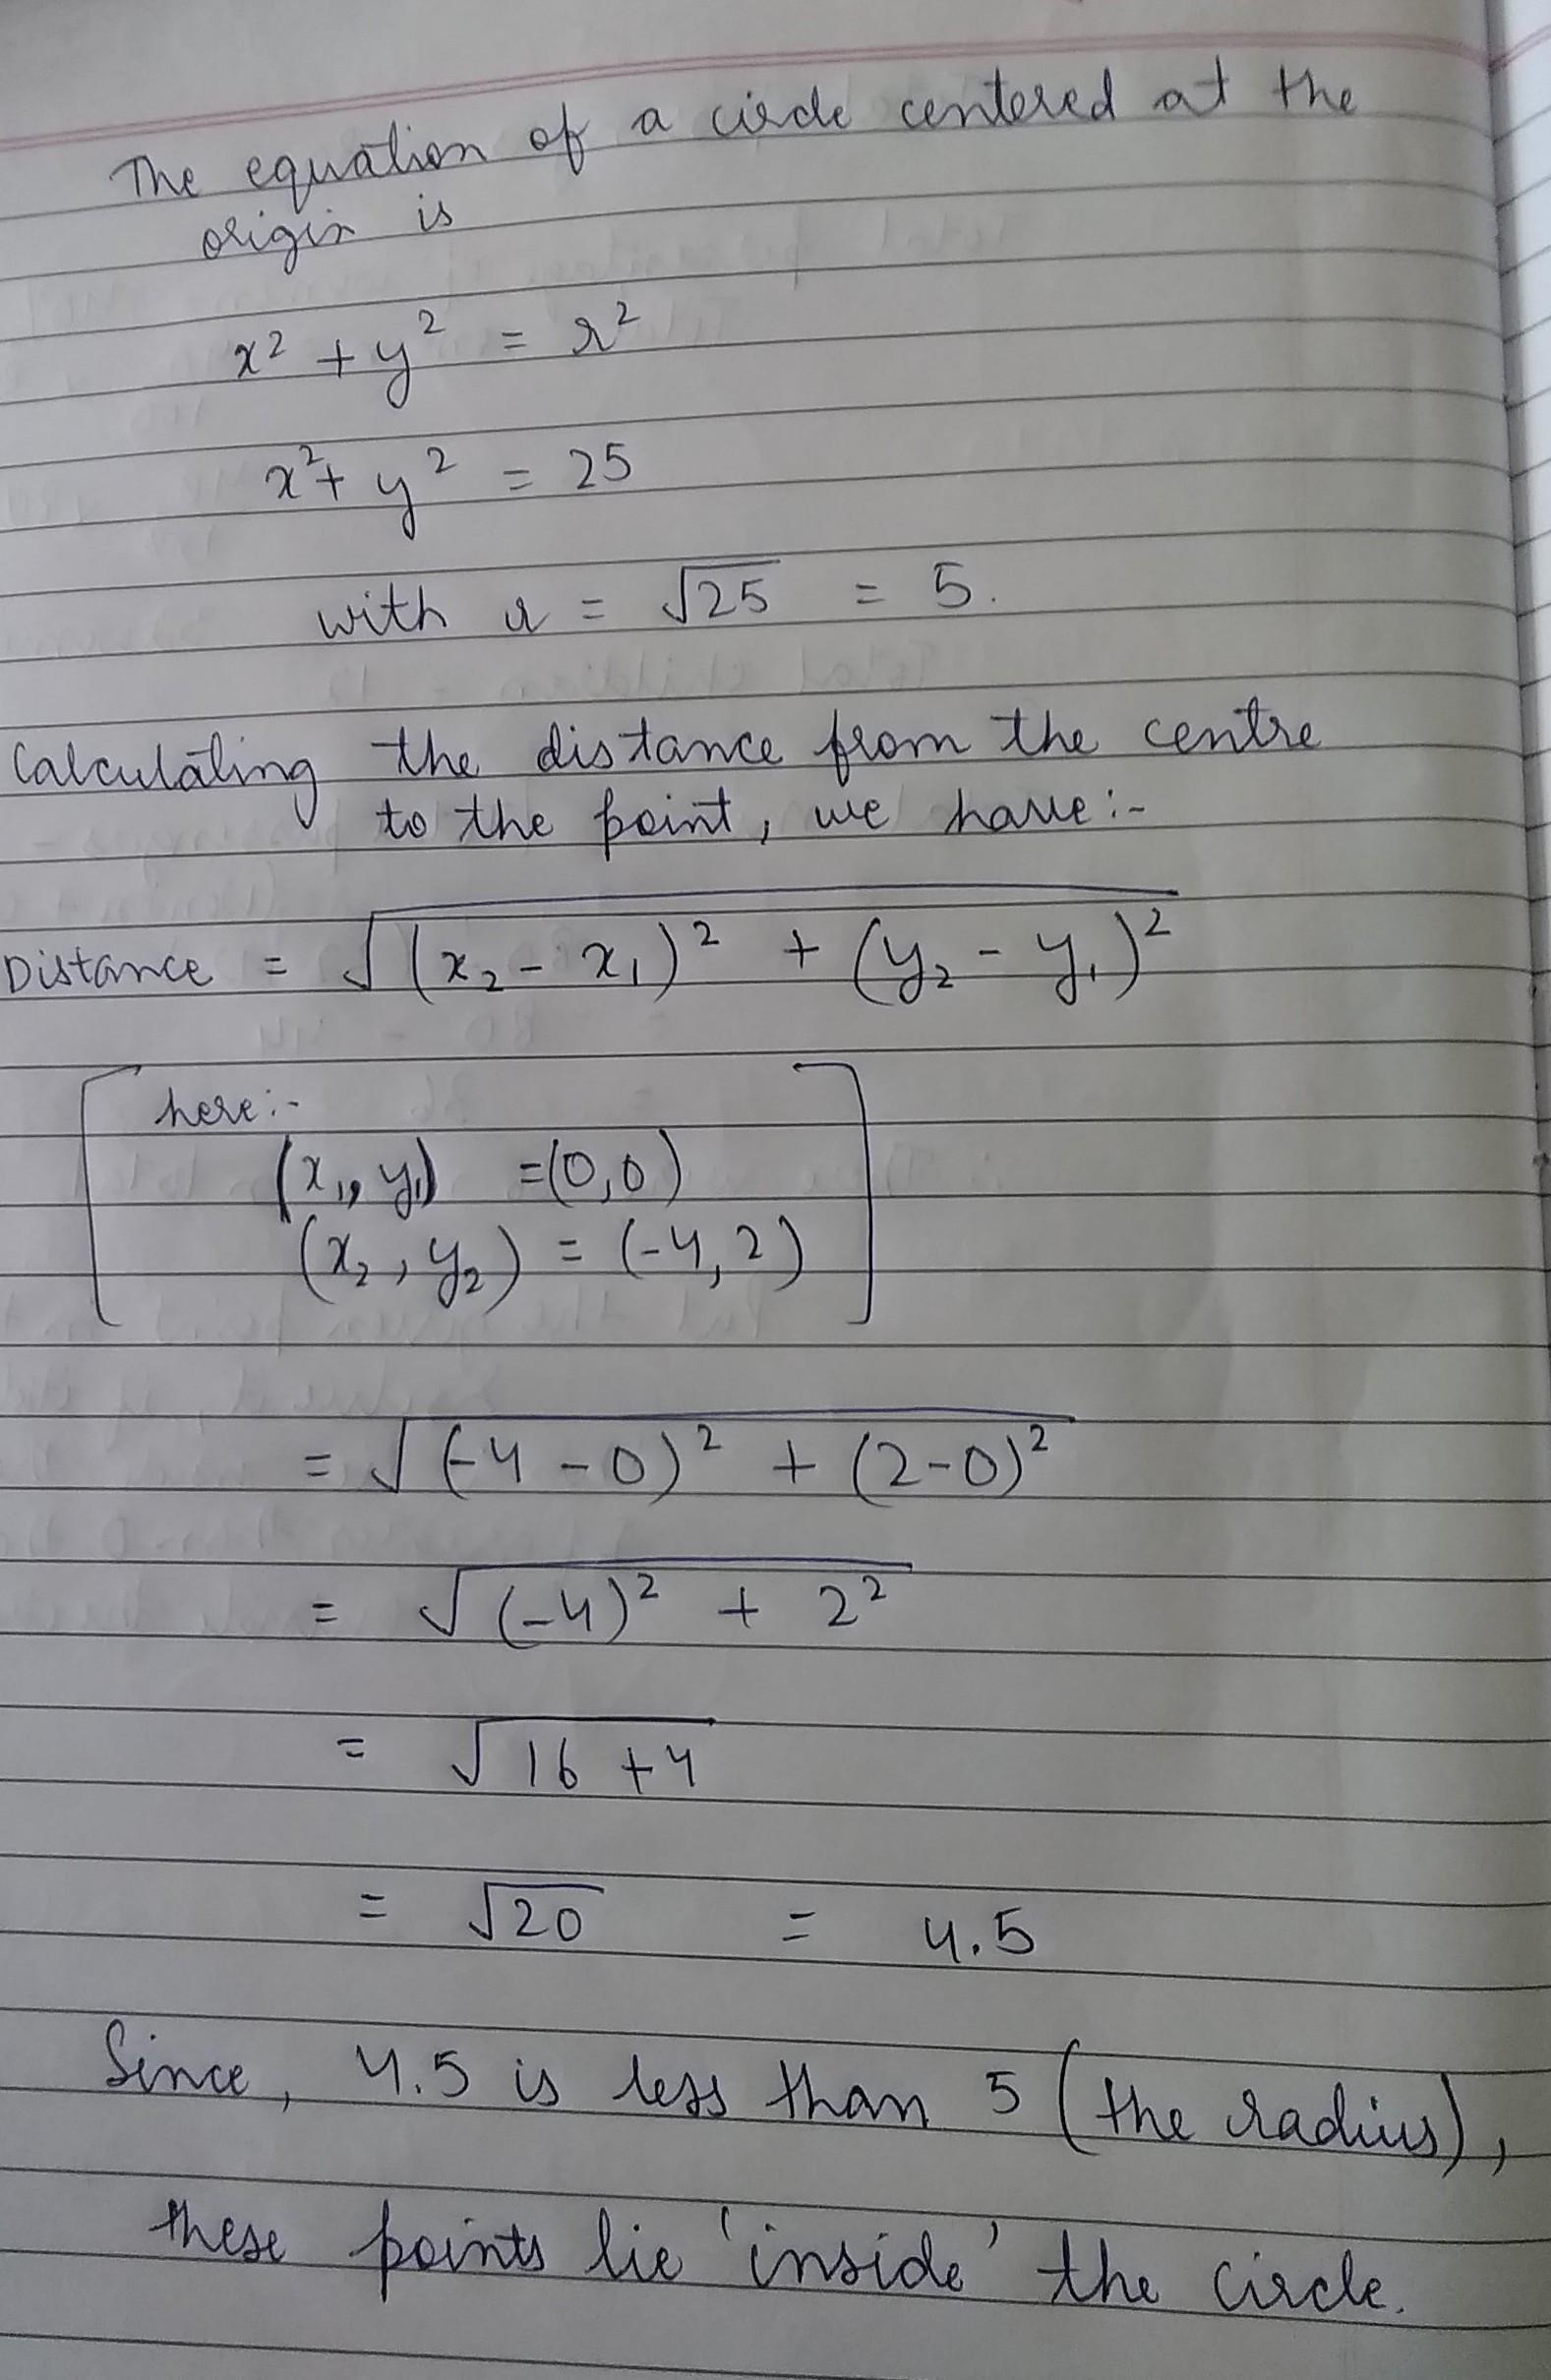 The equation of a circle centered at the
origin is
x² + y² = r²
x² + y² = 25
with r = √25 = 5.
Calculating the distance from the centre
to the point, we have:-
Distance = √(x₂ - x₁)² + (y₂ - y₁)²
here:-
(x₁, y₁) = (0,0)
(x₂, y₂) = (-4, 2)
= √(-4 - 0)² + (2-0)²
= √(-4)² + 2²
= √16 + 4
= √20 = 4.5
Since, 4.5 is less than 5 (the radius),
these points lie 'inside' the circle.